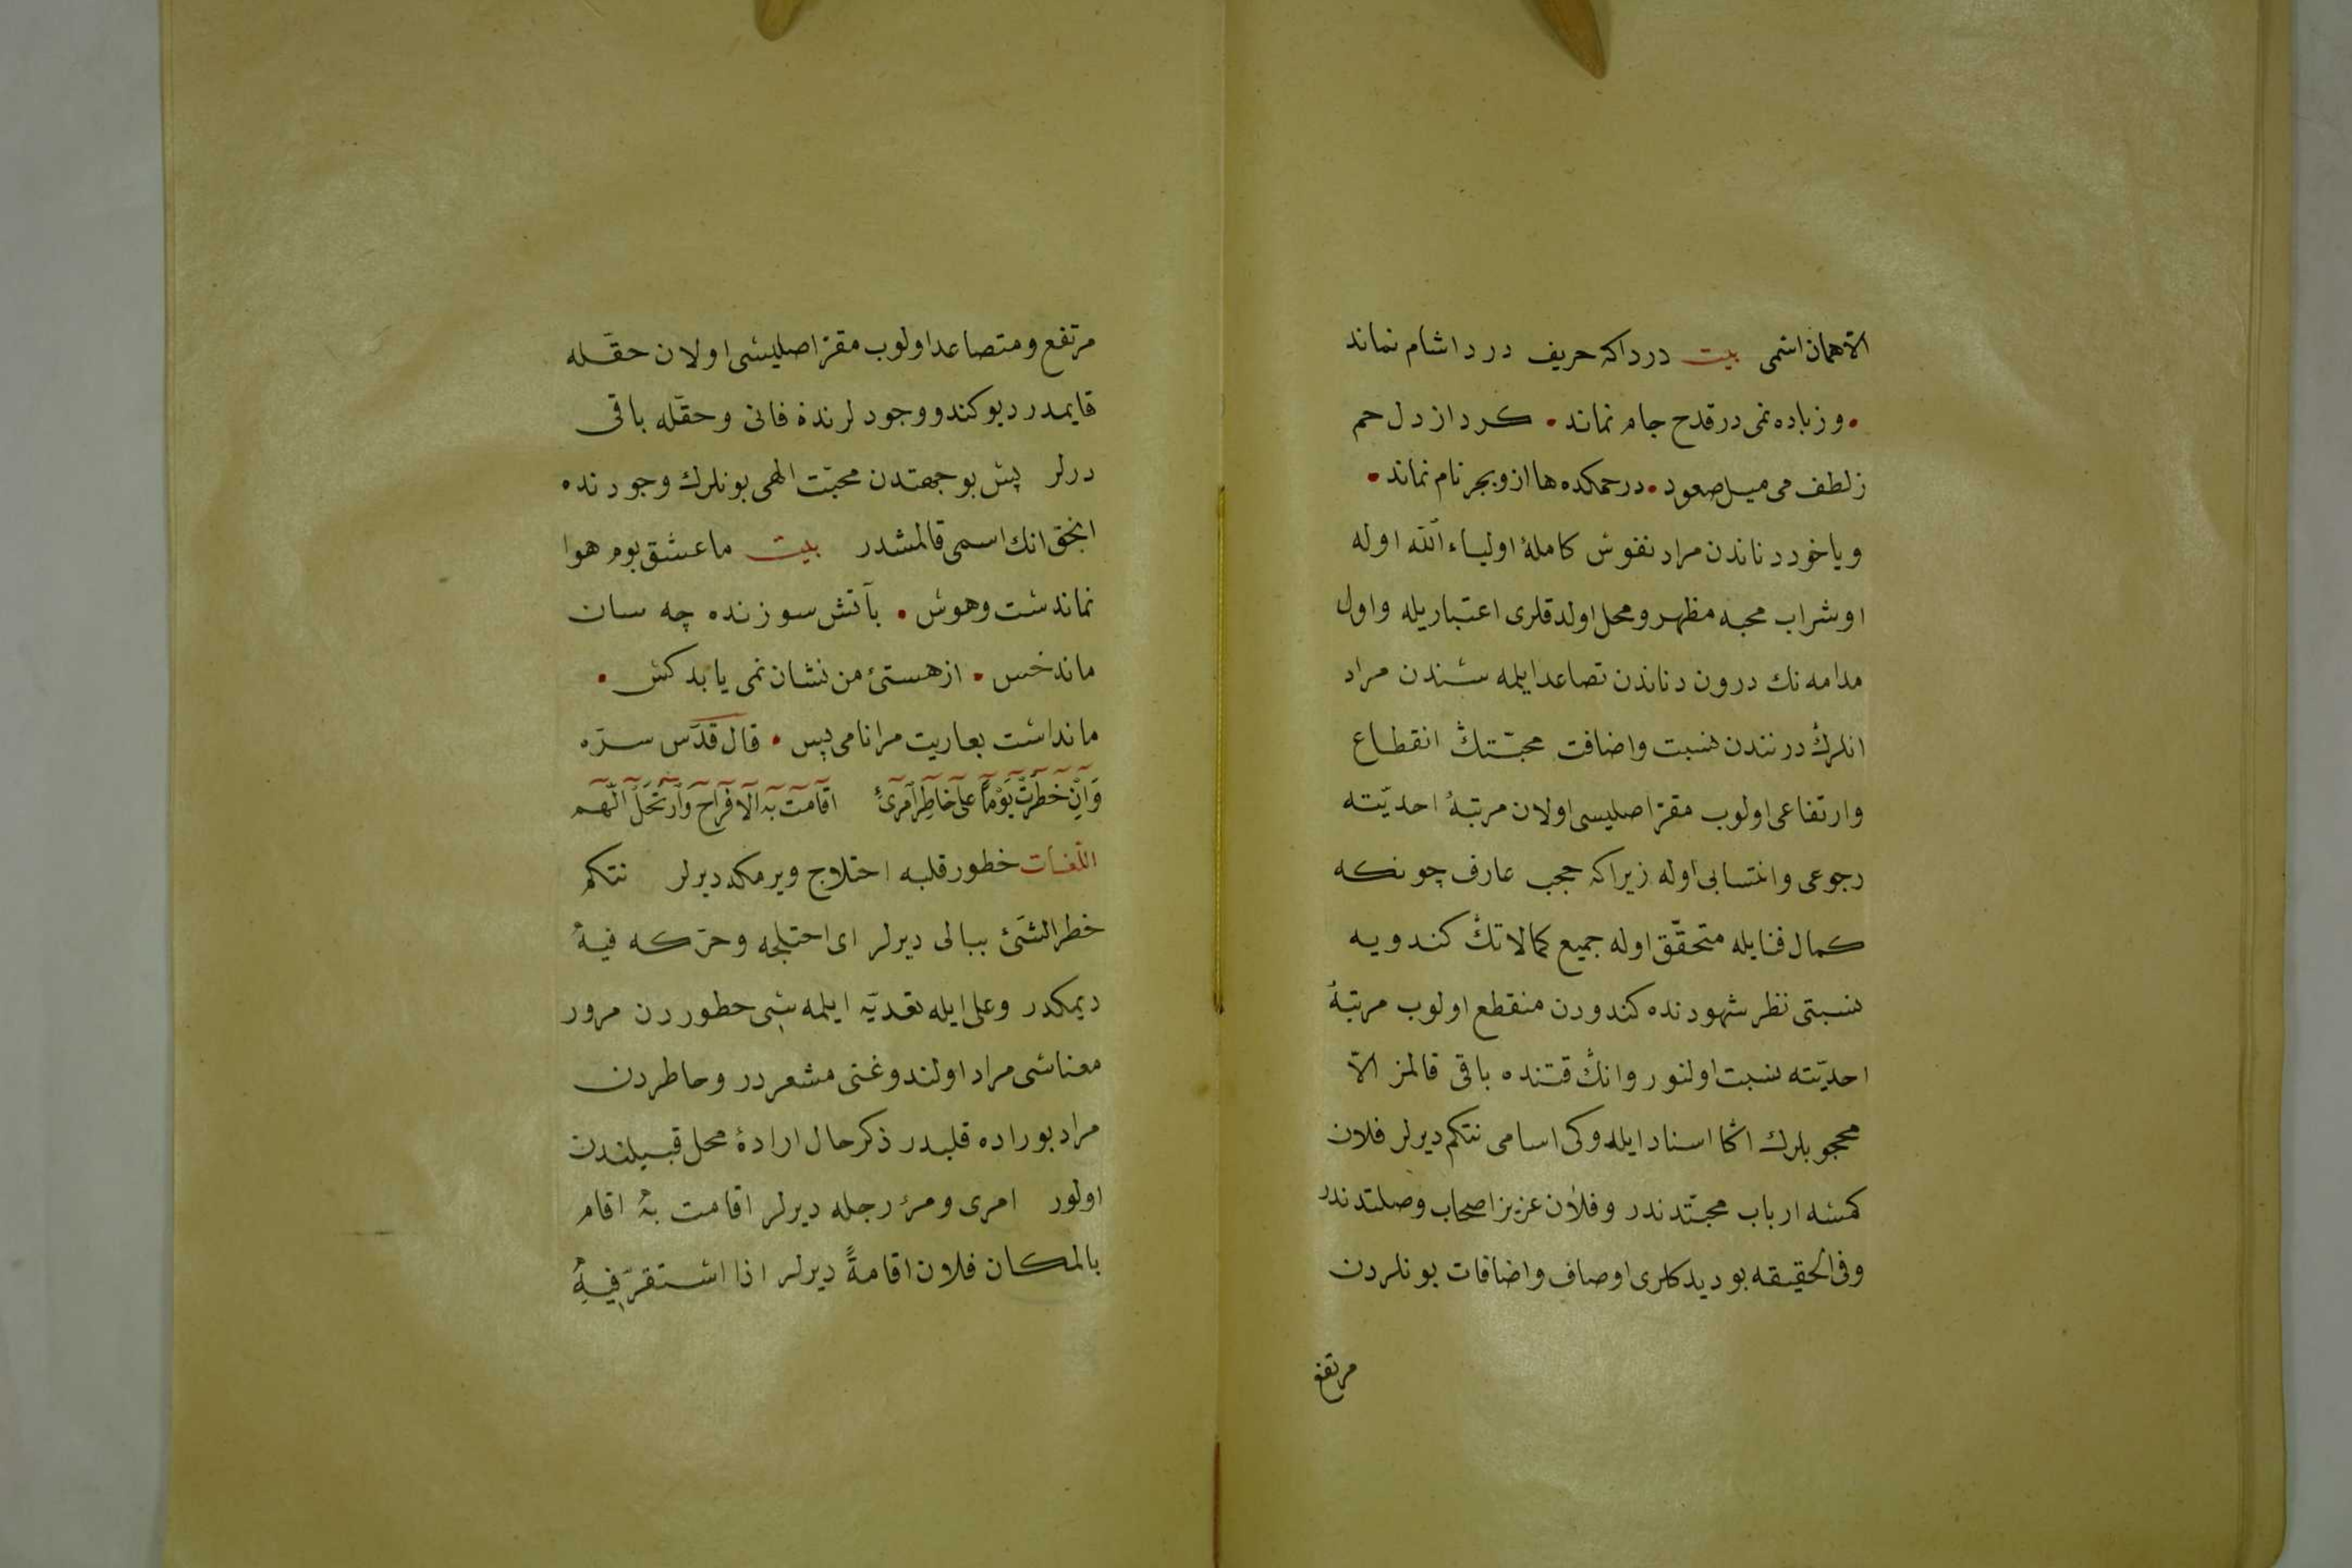 الّا همان اسمی بیت درداکه حریف درد اشام نماند
• وز باده نمی در قدح جام نماند • کرد از دل خم
ز لطف می میل صعود • در خمکده ها ازو بجز نام نماند •
ویاخود دناندن مراد نفوس کاملهٔ اولیاء الله اوله
او شراب محبه مظهر و محل اولدقلری اعتباریله و اول
مدامه نك درون دناندن تصاعد ایلمه سندن مراد
انلرڭ درنتدن نسبت واضافت محبّتڭ انقطاع
وارتفاعی اولوب مقرّ اصلیسی اولان مرتبهٔ احدیّته
رجوعی وانتسابی اوله زیراکه حجب عارف چونکه
کمال فنایله متحقّق اوله جمیع کمالاتڭ کندویه
نسبتی نظر شهودنده کندودن منقطع اولوب مرتبهٔ
احدیّته نسبت اولنور وانڭ قتنده باقی قالمز الّا
محجوبلرك اڭا اسناد ایلدوکی اسامی نتکم دیرلر فلان
کمسه ارباب محبّتدندر وفلان عزیز اصحاب وصلتدندر
وفی الحقیقه بو دیدکلری اوصاف واضافات بونلردن
مرتفع
مرتفع ومتصاعد اولوب مقرّ اصلیسی اولان حقّله
قایمدر دیو کندو وجودلرندۀ فانی وحقّله باقی
درلر پس بو جهتدن محبّت الهی بونلرك وجودنده
انجق انك اسمی قالمشدر بیت ما عشق بوم هوا
نماندست وهوس • با آتش سوزنده چه سان
ماند خس • از هستیٔ من نشان نمی یابد کس •
ماندست بعاریت مرا نامی بس • قال قدّس سرّه
وَاِنْ خَطَرَتْ يَوْمًا عَلَى خَاطِرِ امْرِئٍ اَقَامَتْ بِهِ الْاَفْرَاحُ وَارْتَحَلَ الْهَمُّ
اللّغات خطور قلبه اختلاج ویرمکه دیرلر نتکم
خطر الشئ ببالی دیرلر ای اختلجه وحرّکه فیهِ
دیمکدر وعلی ایله تعدیّه ایلمه سی خطوردن مرور
معناسی مراد اولندوغنی مشعردر وخاطردن
مراد بوراده قلبدر ذکر حال ارادهٔ محل قبیلندن
اولور امری ومرؤ رجله دیرلر اقامت بهِ اقام
بالمکان فلان اقامةً دیرلر اذا استقرّ فیهِ